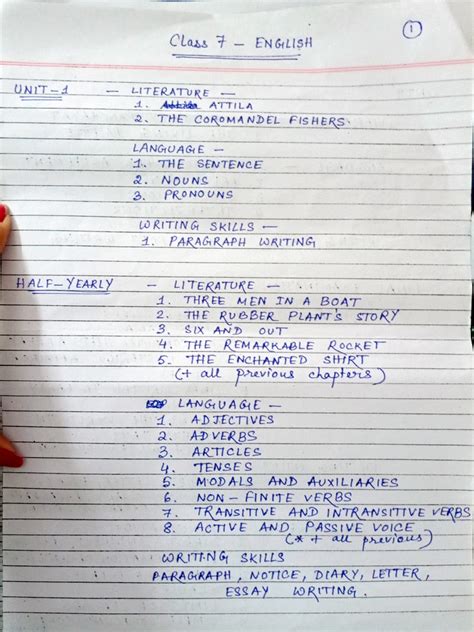 1
Class 7 - ENGLISH
UNIT-1 - LITERATURE -
1. ATTILA
2. THE COROMANDEL FISHERS
LANGUAGE -
1. THE SENTENCE
2. NOUNS
3. PRONOUNS
WRITING SKILLS -
1. PARAGRAPH WRITING
HALF-YEARLY - LITERATURE -
1. THREE MEN IN A BOAT
2. THE RUBBER PLANT'S STORY
3. SIX AND OUT
4. THE REMARKABLE ROCKET
5. THE ENCHANTED SHIRT
(+ all previous chapters)
LANGUAGE -
1. ADJECTIVES
2. ADVERBS
3. ARTICLES
4. TENSES
5. MODALS AND AUXILIARIES
6. NON-FINITE VERBS
7. TRANSITIVE AND INTRANSITIVE VERBS
8. ACTIVE AND PASSIVE VOICE
(* + all previous)
WRITING SKILLS
PARAGRAPH, NOTICE, DIARY, LETTER,
ESSAY WRITING.